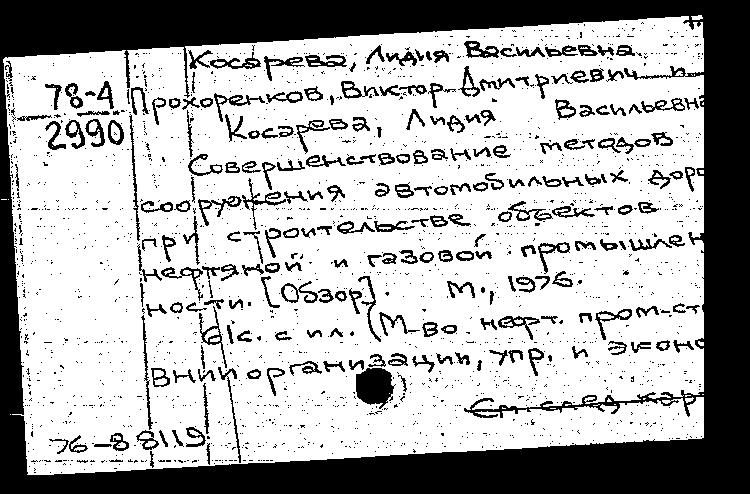 Косарева, Лидия Васильевна
78-4
2990
Прохоренков, Виктор Дмитриевич и
Косарева, Лидия Васильевна
Совершенствование методов
сооружения автомобильных доро
при строительстве объектов
нефтяной и газовой промышлен
ности. [Обзор]. М., 1976.
61с. с ил. (М-во нефт. пром-сти
ВНИИ организации, упр. и эконо
См. след. кар
76-88119